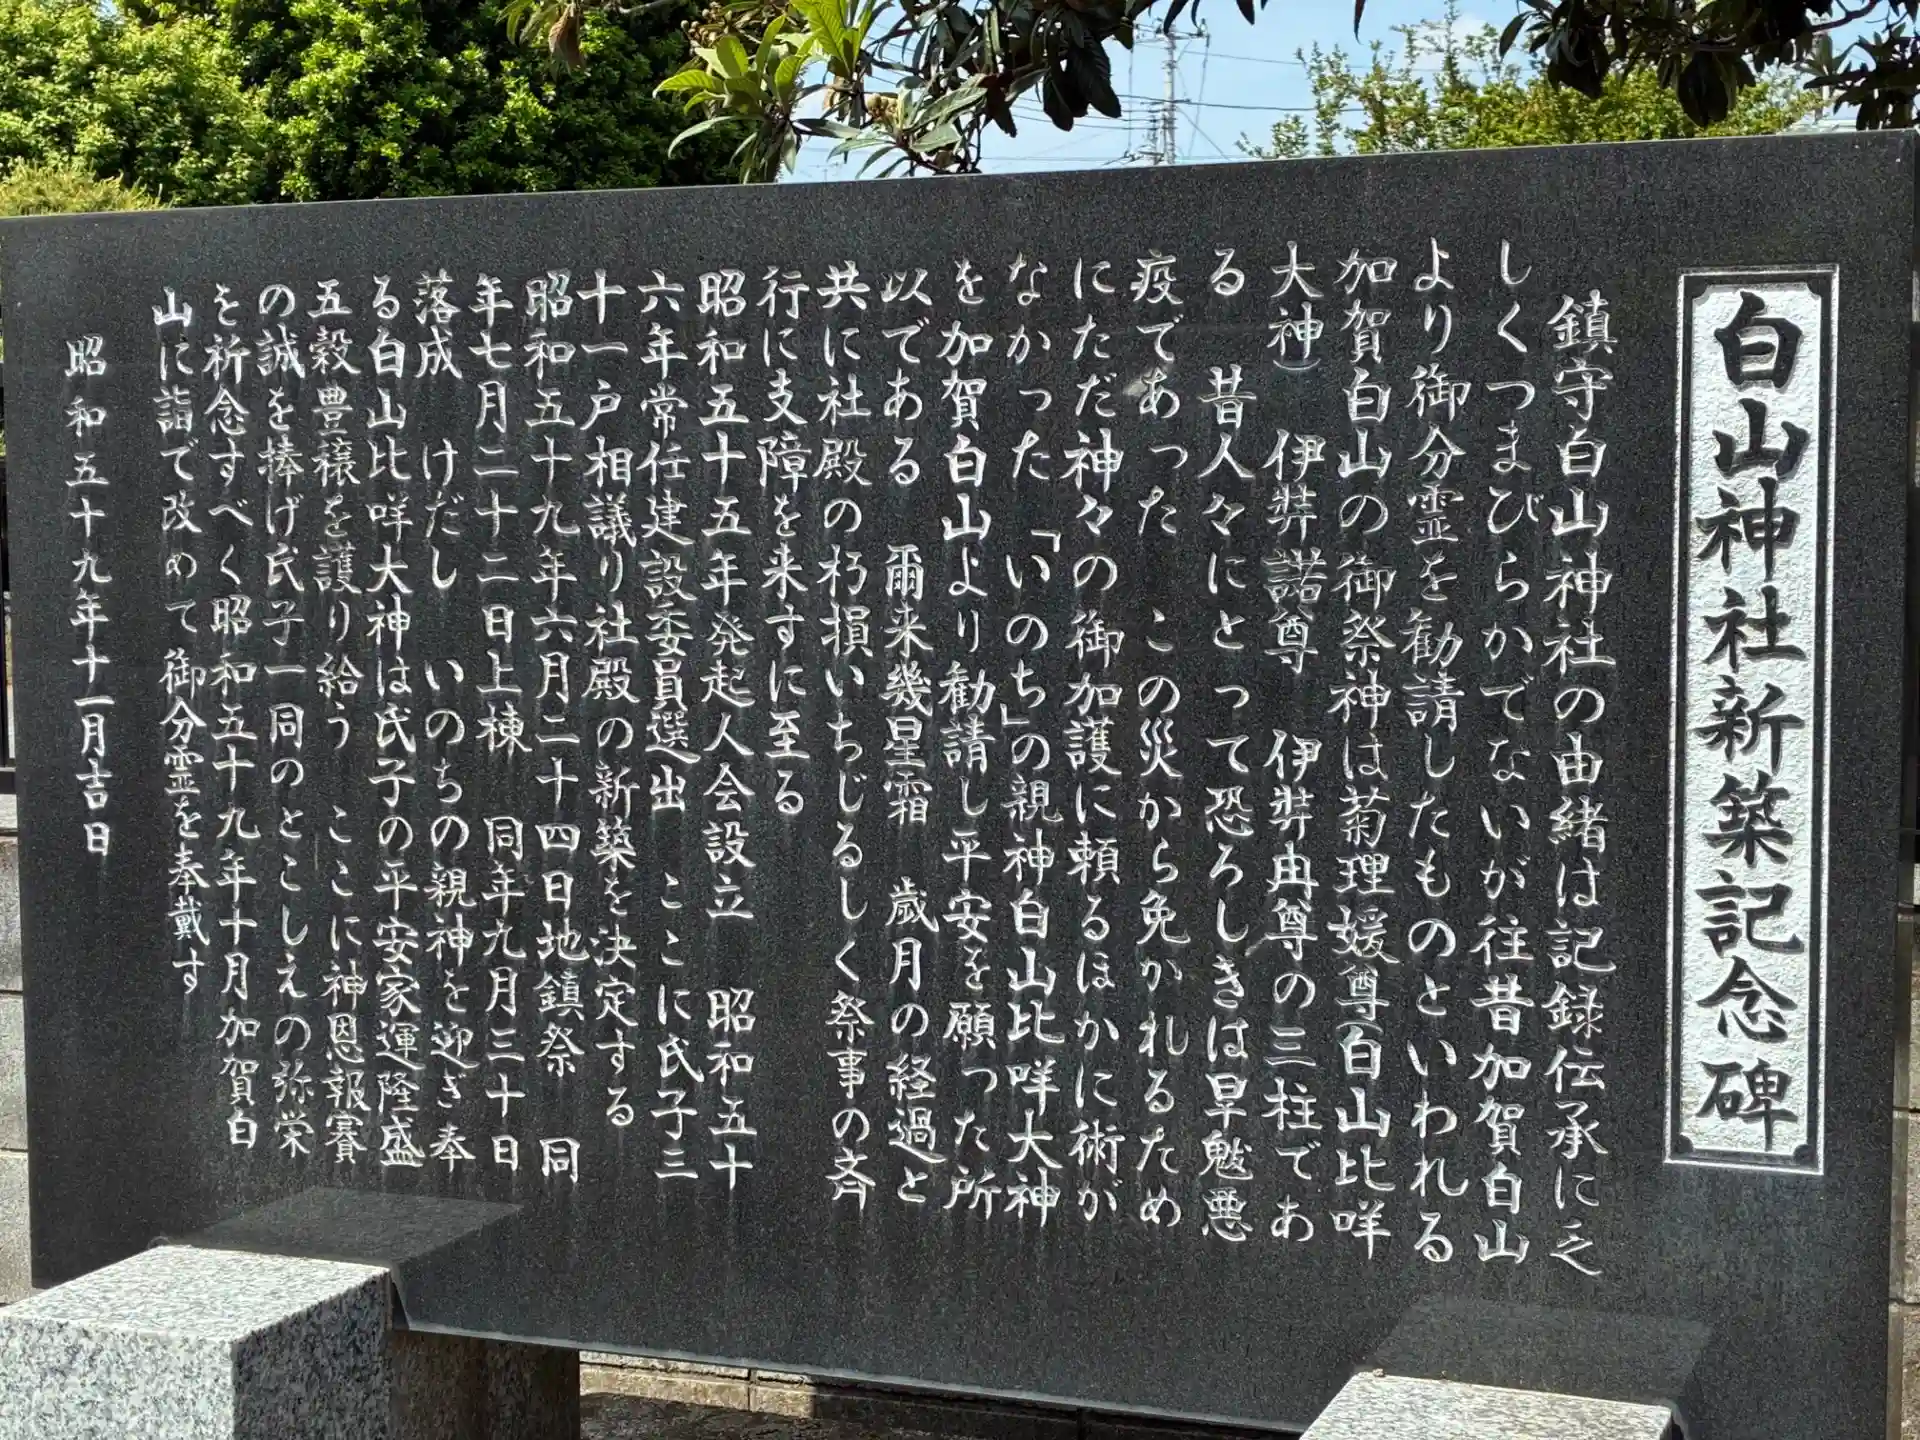 白山神社新築記念碑
鎮守白山神社の由緒は記録伝承に乏
しくつまびらかでないが往昔加賀白山
より御分霊を勧請したものといわれる
加賀白山の御祭神は菊理媛尊(白山比咩
大神) 伊弉諾尊 伊弉冉尊の三柱であ
る 昔人々にとって恐ろしきは旱魃悪
疫であった この災から免かれるため
にただ神々の御加護に頼るほかに術が
なかった「いのち」の親神白山比咩大神
を加賀白山より勧請し平安を願った所
以である 爾来幾星霜 歳月の経過と
共に社殿の朽損いちじるしく祭事の斉
行に支障を来すに至る
昭和五十五年発起人会設立 昭和五十
六年常任建設委員選出 ここに氏子三
十一戸相議り社殿の新築を決定する
昭和五十九年六月二十四日地鎮祭 同
年七月二十二日上棟 同年九月三十日
落成 けだし いのちの親神を迎ぎ奉
る白山比咩大神は氏子の平安家運隆盛
五穀豊穣を護り給う ここに神恩報賽
の誠を捧げ氏子一同のとこしえの弥栄
を祈念すべく昭和五十九年十月加賀白
山に詣で改めて御分霊を奉戴す
昭和五十九年十一月吉日